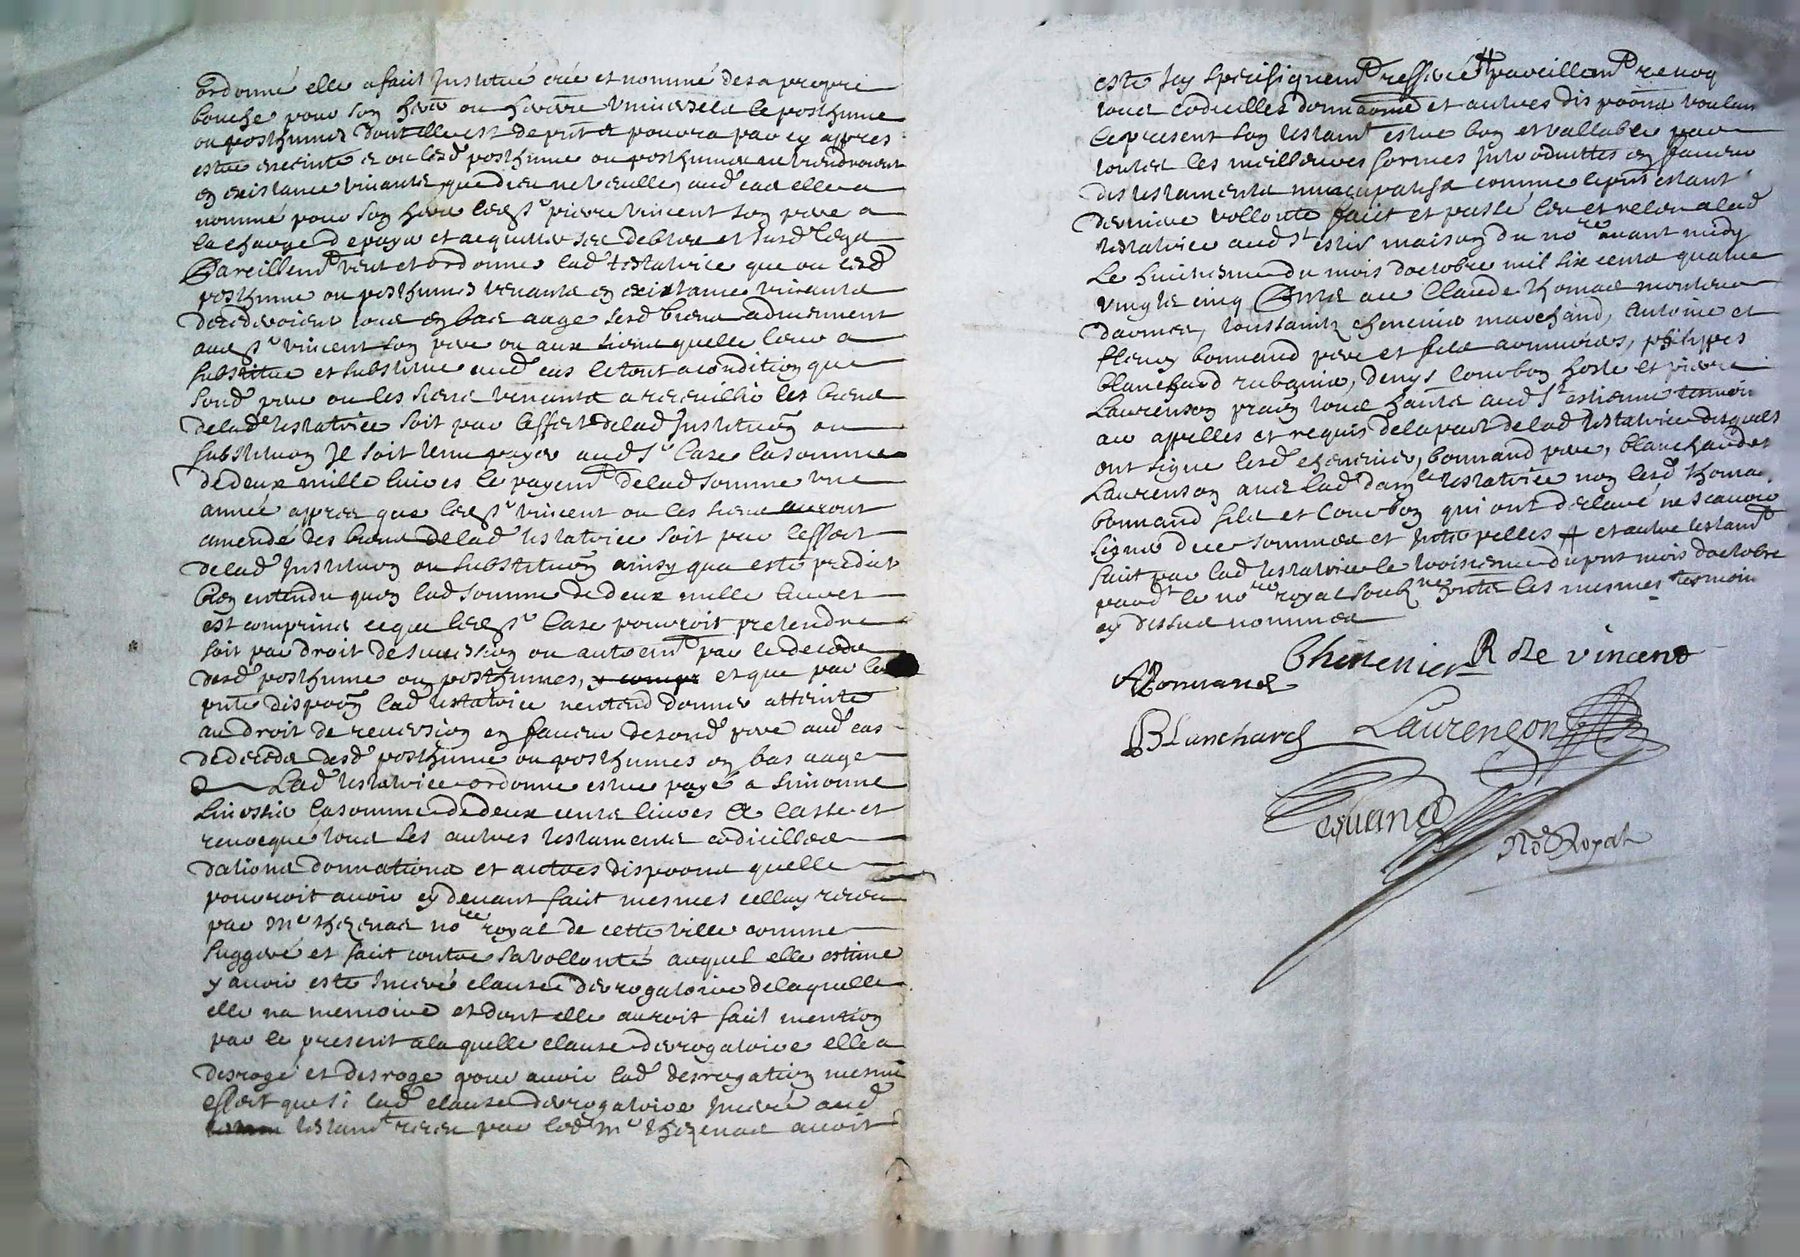 ordonné elle a fait Institué créé et nommé de sa propre
bouche pour son here ou herere universelle le posthume
ou posthumes dont elle est de pnt et pourra par cy appres
estre enceinte et ou lesd posthume ou posthumes ne viendroient
en existance vivante, que dieu ne veuille, aud cas elle a
nommé pour son here led Sr pierre vincent son pere a
la charge de payer et acquitter ses debtes et susd legat
Pareillemt veut et ordonne lad testatrice que ou lesd
posthume ou posthumes venants en existance vivants
decederoient tous en bas aage sesd biens adviennent
aud Sr vincent son pere ou aux siens quelle leur a
substitue et substitue aud cas le tout a condition que
sond pere ou les siens venants a receuillir les biens
de lad testatrice soit par leffect de lad Institution ou
substitution Il soit tenu payer aud Sr Caze la somme
de deux mille livres le payemt de lad somme une
année appres que led Sr vincent ou les siens auront
amendé des biens de lad testatrice soit par leffect
de lad Institution ou substitution ainsy qua esté predit
bien entendu quen lad somme de deux mille livres
est comprins ce que led Sr Caze pourroit pretendre
soit par droit de succession ou autremt par le deceds
desd posthume ou posthumes, et que par les
pntes dispoon lad testatrice nentend donner atteinte
au droit de reversion en faveur de sond pere aud cas
de deceds desd posthume ou posthumes en bas aage
Lad testatrice ordonne estre payé a Simonne
Linossie la somme de deux cents livres Et casse et
revocque tous ses autres testaments codicilles
dations donnations et autres dispoons quelle
pourroit avoir cy devant fait mesmes celluy receu
par Me Thezenas nore royal de cette ville comme
suggeré et fait contre sa vollonté auquel elle estime
y avoir esté Inseré clause derrogatoire de laquelle
elle na memoire et dont elle auroit fait mention
par le present a laquelle clause derrogatoire elle a
desrogé et desroge pour avoir lad desrogation mesme
effect que si lad clause derrogatoire Inseré aud
testamt receu par led Me Thezenas avoit
esté Icy speciffiquemt pareillemt revoq
tous codicilles donnaons et autres dispoons voulant
le present son testamt estre bon et vallable par
toutes les meilleures formes Introduittes en faveur
des testaments nuncupatifs comme le pnt estant sa
derniere vollonté faict et passé leu et releu a lad
testatrice aud St estie maison du nore avant midy
Le huitiesme du mois doctobre mil six cents quatre
vingts cinq Pnts au Claude Thomas monteur
darmes, toussaintz chenevier marchand, Antoine et
fleury bonnand pere et fils armuriers, philippes
blanchard rubanier, denys Courbon hoste et pierre
Laurenson praen tous hants aud St estienne tesmoins
au appelles et requis de la part de lad testatrice desquels
ont signe lesd chenevier, bonnand pere, blanchard et
Laurenson avec lad damlle testatrice non lesd Thomas,
bonnand fils et Courbon qui ont declaré ne scavoir
signer de ce sommes et Interpelles et autre testamt
fait par lad testatrice le troisiesme du pnt mois doctobre
pardt le nore royal soubne pntes les mesmes tesmoins
cy dessus nommes
Chenevier R De vincent
A Bonnand
Blanchard Laurenson
Nore Royal